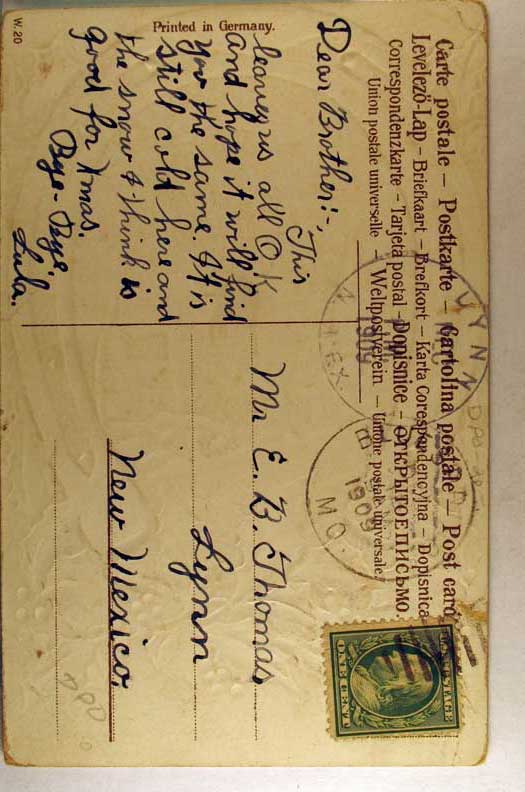 Carte postale – Postkarte – Cartolina postale – Post card
Levelező-Lap – Briefkaart – Brefkort – Karta Corespondencyjna – Dopisnica
Correspondenzkarte – Tarjeta postal – Dopisnice – ОТКРЫТОЕ ПИСЬМО.
Union postale universelle – Weltpostverein – Unione postale universale.
Printed in Germany.
W. 20
Dear Brother:-,
This
leaves us all O.K
and hope it will find
you the same. It is
still cold here and
the snow I think is
good for Xmas.
Bye-Bye,
Lula.
LYNN
1909
N. MEX.
1909
MO.
POSTAGE
ONE CENT
Mr E. B. Thomas
Lynn
New Mexico.
DPO